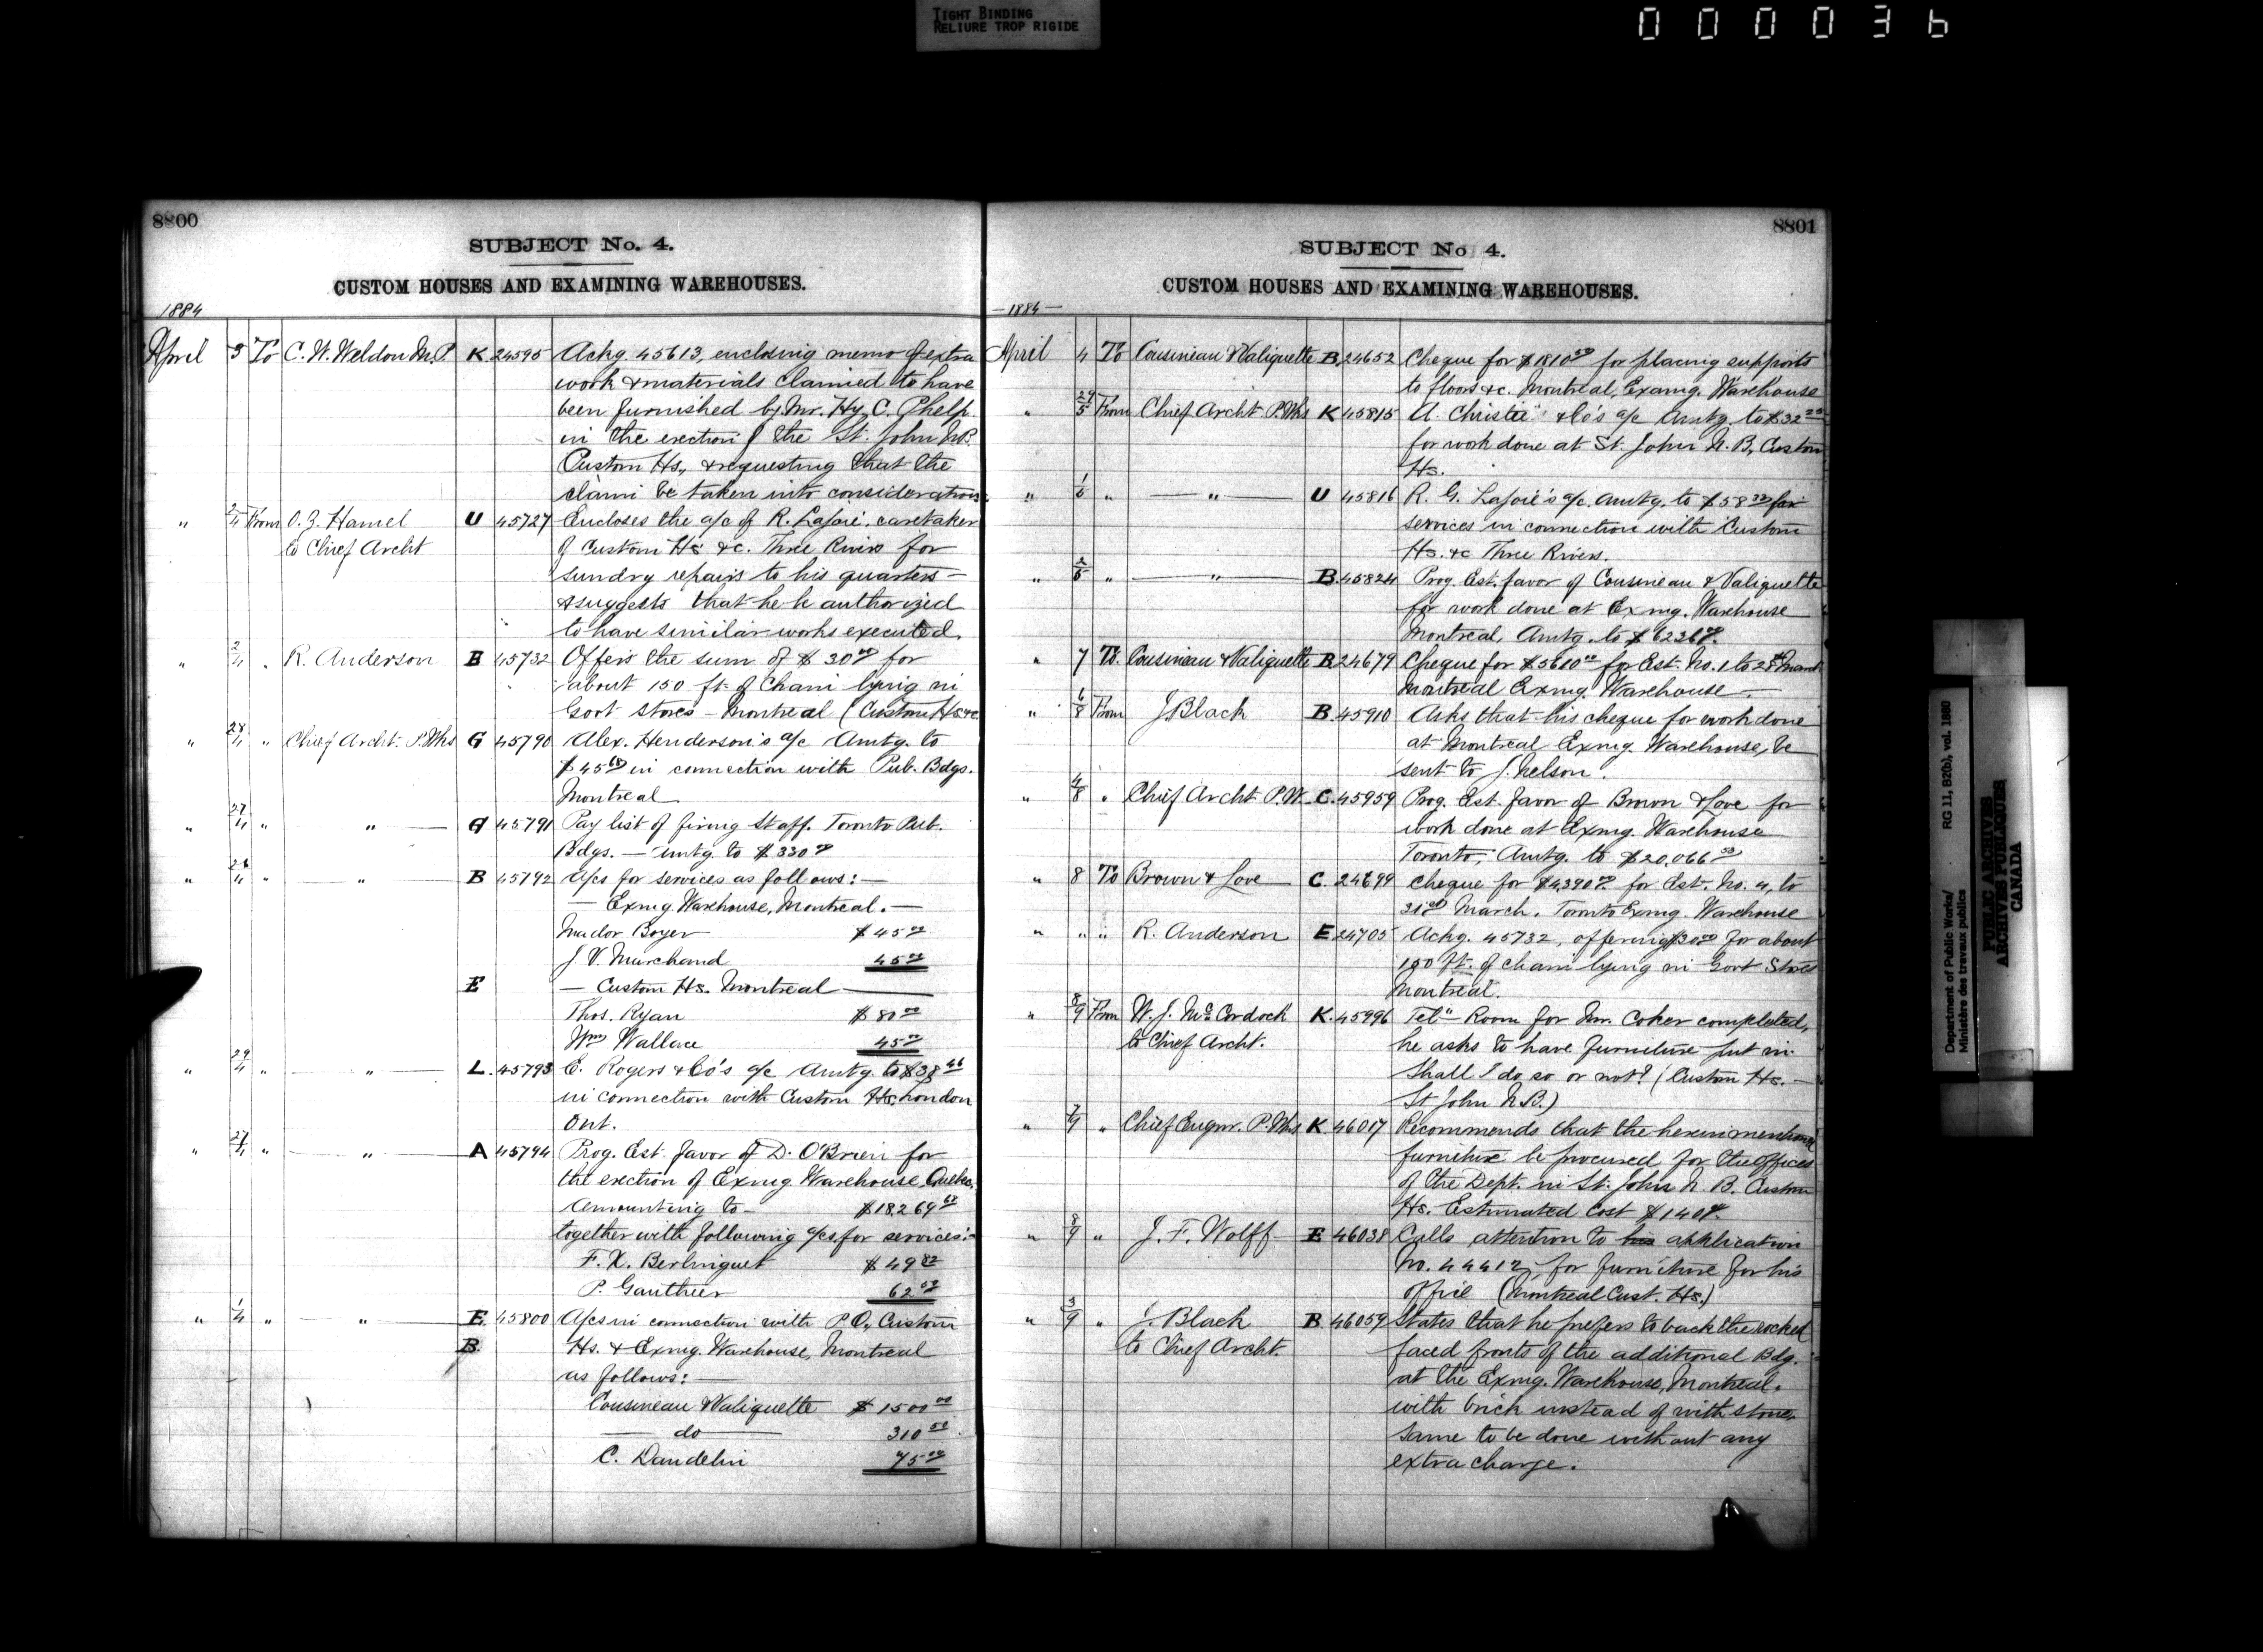 TIGHT BINDING
RELIURE TROP RIGIDE
000036
8800
SUBJECT No. 4.
CUSTOM HOUSES AND EXAMINING WAREHOUSES.
1884
April 3 To C. W. Weldon M.P. K 24595 Ackg 45613, enclosing memo of extra
work & materials claimed to have
been furnished by Mr. Hy. C. Phelp
in the erection of the St. John N.B.
Custom Hs., & requesting that the
claim be taken into consideration
" 2/4 From O. Z. Hamel U 45727 Encloses the a/c of R. Lajoie, caretaker
to Chief Archt of Custom Hs &c. Three Rivers for
sundry repairs to his quarters —
& suggests that he be authorized
to have similar works executed.
" 2/4 " R. Anderson E 45732 Offers the sum of $30.00 for
about 150 ft. of Chain lying in
Govt stores — Montreal (Custom Hs &c
" 28/4 " Chief Archt. P. Wks G 45790 Alex. Henderson's a/c Amtg. to
$45 in connection with Pub. Bdgs.
Montreal
" 27/4 " " G 45791 Pay list of firing Staff. Toronto Pub.
Bdgs. — amtg. to $330
" 26/4 " " B 45792 A/cs for services as follows: —
— Exmg. Warehouse, Montreal. —
Mador Boyer $45.00
J. V. Marchand 45.00
E — Custom Hs. Montreal —
Thos. Ryan $80.00
Wm Wallace 45.00
" 29/4 " " L. 45793 E. Rogers & Co's a/c Amtg. to $38.46
in connection with Custom Hs. London
Ont.
" 27/4 " " A 45794 Prog. Est. favor of D. O'Brien for
the erection of Exmg Warehouse Quebec,
Amounting to — $18269
together with following a/cs for services: —
F. X. Berlinguet $49.82
P. Gauthier 62.50
" 1/4 " " E. 45800 A/cs in connection with P.O., Custom
B. Hs. & Exmg. Warehouse, Montreal
as follows: —
Cousineau & Valiquette $1500.00
— do — 310.50
C. Dandelin 75.00
8801
SUBJECT No 4.
CUSTOM HOUSES AND EXAMINING WAREHOUSES.
— 1884 —
April 4 To Cousineau & Valiquette B. 24652 Cheque for $1810.50 for placing supports
to floors &c. Montreal, Examg. Warehouse
" 29/5 From Chief Archt. P. Wks K 45815 A. Christie & Co's a/c Amtg. to $32
for work done at St. John N. B., Custom
Hs.
" 1/5 " — " — U 45816 R. G. Lajoie's a/c. amtg. to $58 for
services in connection with Custom
Hs. &c Three Rivers.
" 2/5 " — " — B. 45824 Prog. Est. favor of Cousineau & Valiquette
for work done at Exmg. Warehouse
Montreal, Amtg. to $6236.00
" 7 To. Cousineau & Valiquette B. 24679 Cheque for $5610.00 for Est. No. 1 to 28th March
Montreal Exmg. Warehouse —
" 6/8 From J. Black B. 45910 Asks that his cheque for work done
at Montreal Exmg. Warehouse, be
sent to J. Nelson.
" 4/8 " Chief Archt P.W. C. 45959 Prog. Est. favor of Brown & Love for
work done at Exmg. Warehouse
Toronto; Amtg. to $20,066.53
" 8 To Brown & Love C. 24699 Cheque for $4,390 for Est. No. 4, to
31st March. Toronto Exmg. Warehouse
" " " R. Anderson E 24705 Ackg. 45732, offering $30.00 for about
150 ft. of chain lying in Govt Stores
Montreal.
" 8/9 From W. J. McCordock K. 45996 Teln Room for Mr. Coker completed,
to Chief Archt. he asks to have furniture put in.
Shall I do so or not? (Custom Hs. —
St John N.B.)
" 7/9 " Chief Engnr. P. Wks K 46017 Recommends that the herein mentioned
furniture be procured for the Offices
of the Dept. in St. John N. B. Custom
Hs. Estimated Cost $140.
" 8/9 " J. F. Wolff E 46038 Calls attention to his application
No. 44412, for furniture for his
office (Montreal Cust. Hs.)
" 3/9 " J. Black B. 46059 States that he prefers to back the rocked
to Chief Archt. faced fronts of the additional Bdg.
at the Exmg. Warehouse, Montreal,
with brick instead of with stone,
same to be done without any
extra charge.
Department of Public Works/
Ministère des travaux publics
RG 11, B2(b), vol. 1880
PUBLIC ARCHIVES
ARCHIVES PUBLIQUES
CANADA